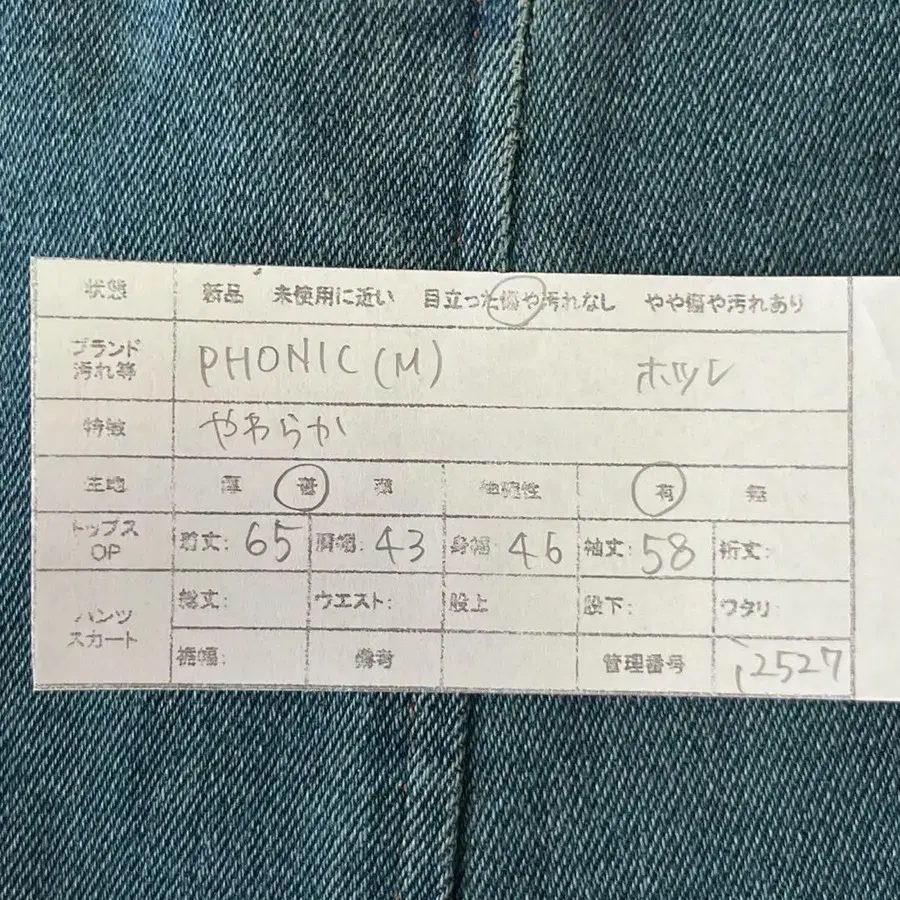 状態 新品 未使用に近い 目立った傷や汚れなし やや傷や汚れあり
ブランド 汚れ等 PHONIC (M) ホツレ
特徴 やわらか
生地 厚 普 薄 伸縮性 有 無
トップス OP 着丈: 65 肩幅: 43 身幅: 46 袖丈: 58 裄丈:
パンツ スカート 総丈: ウエスト: 股上 股下: ワタリ
裾幅: 備考 管理番号 i2527